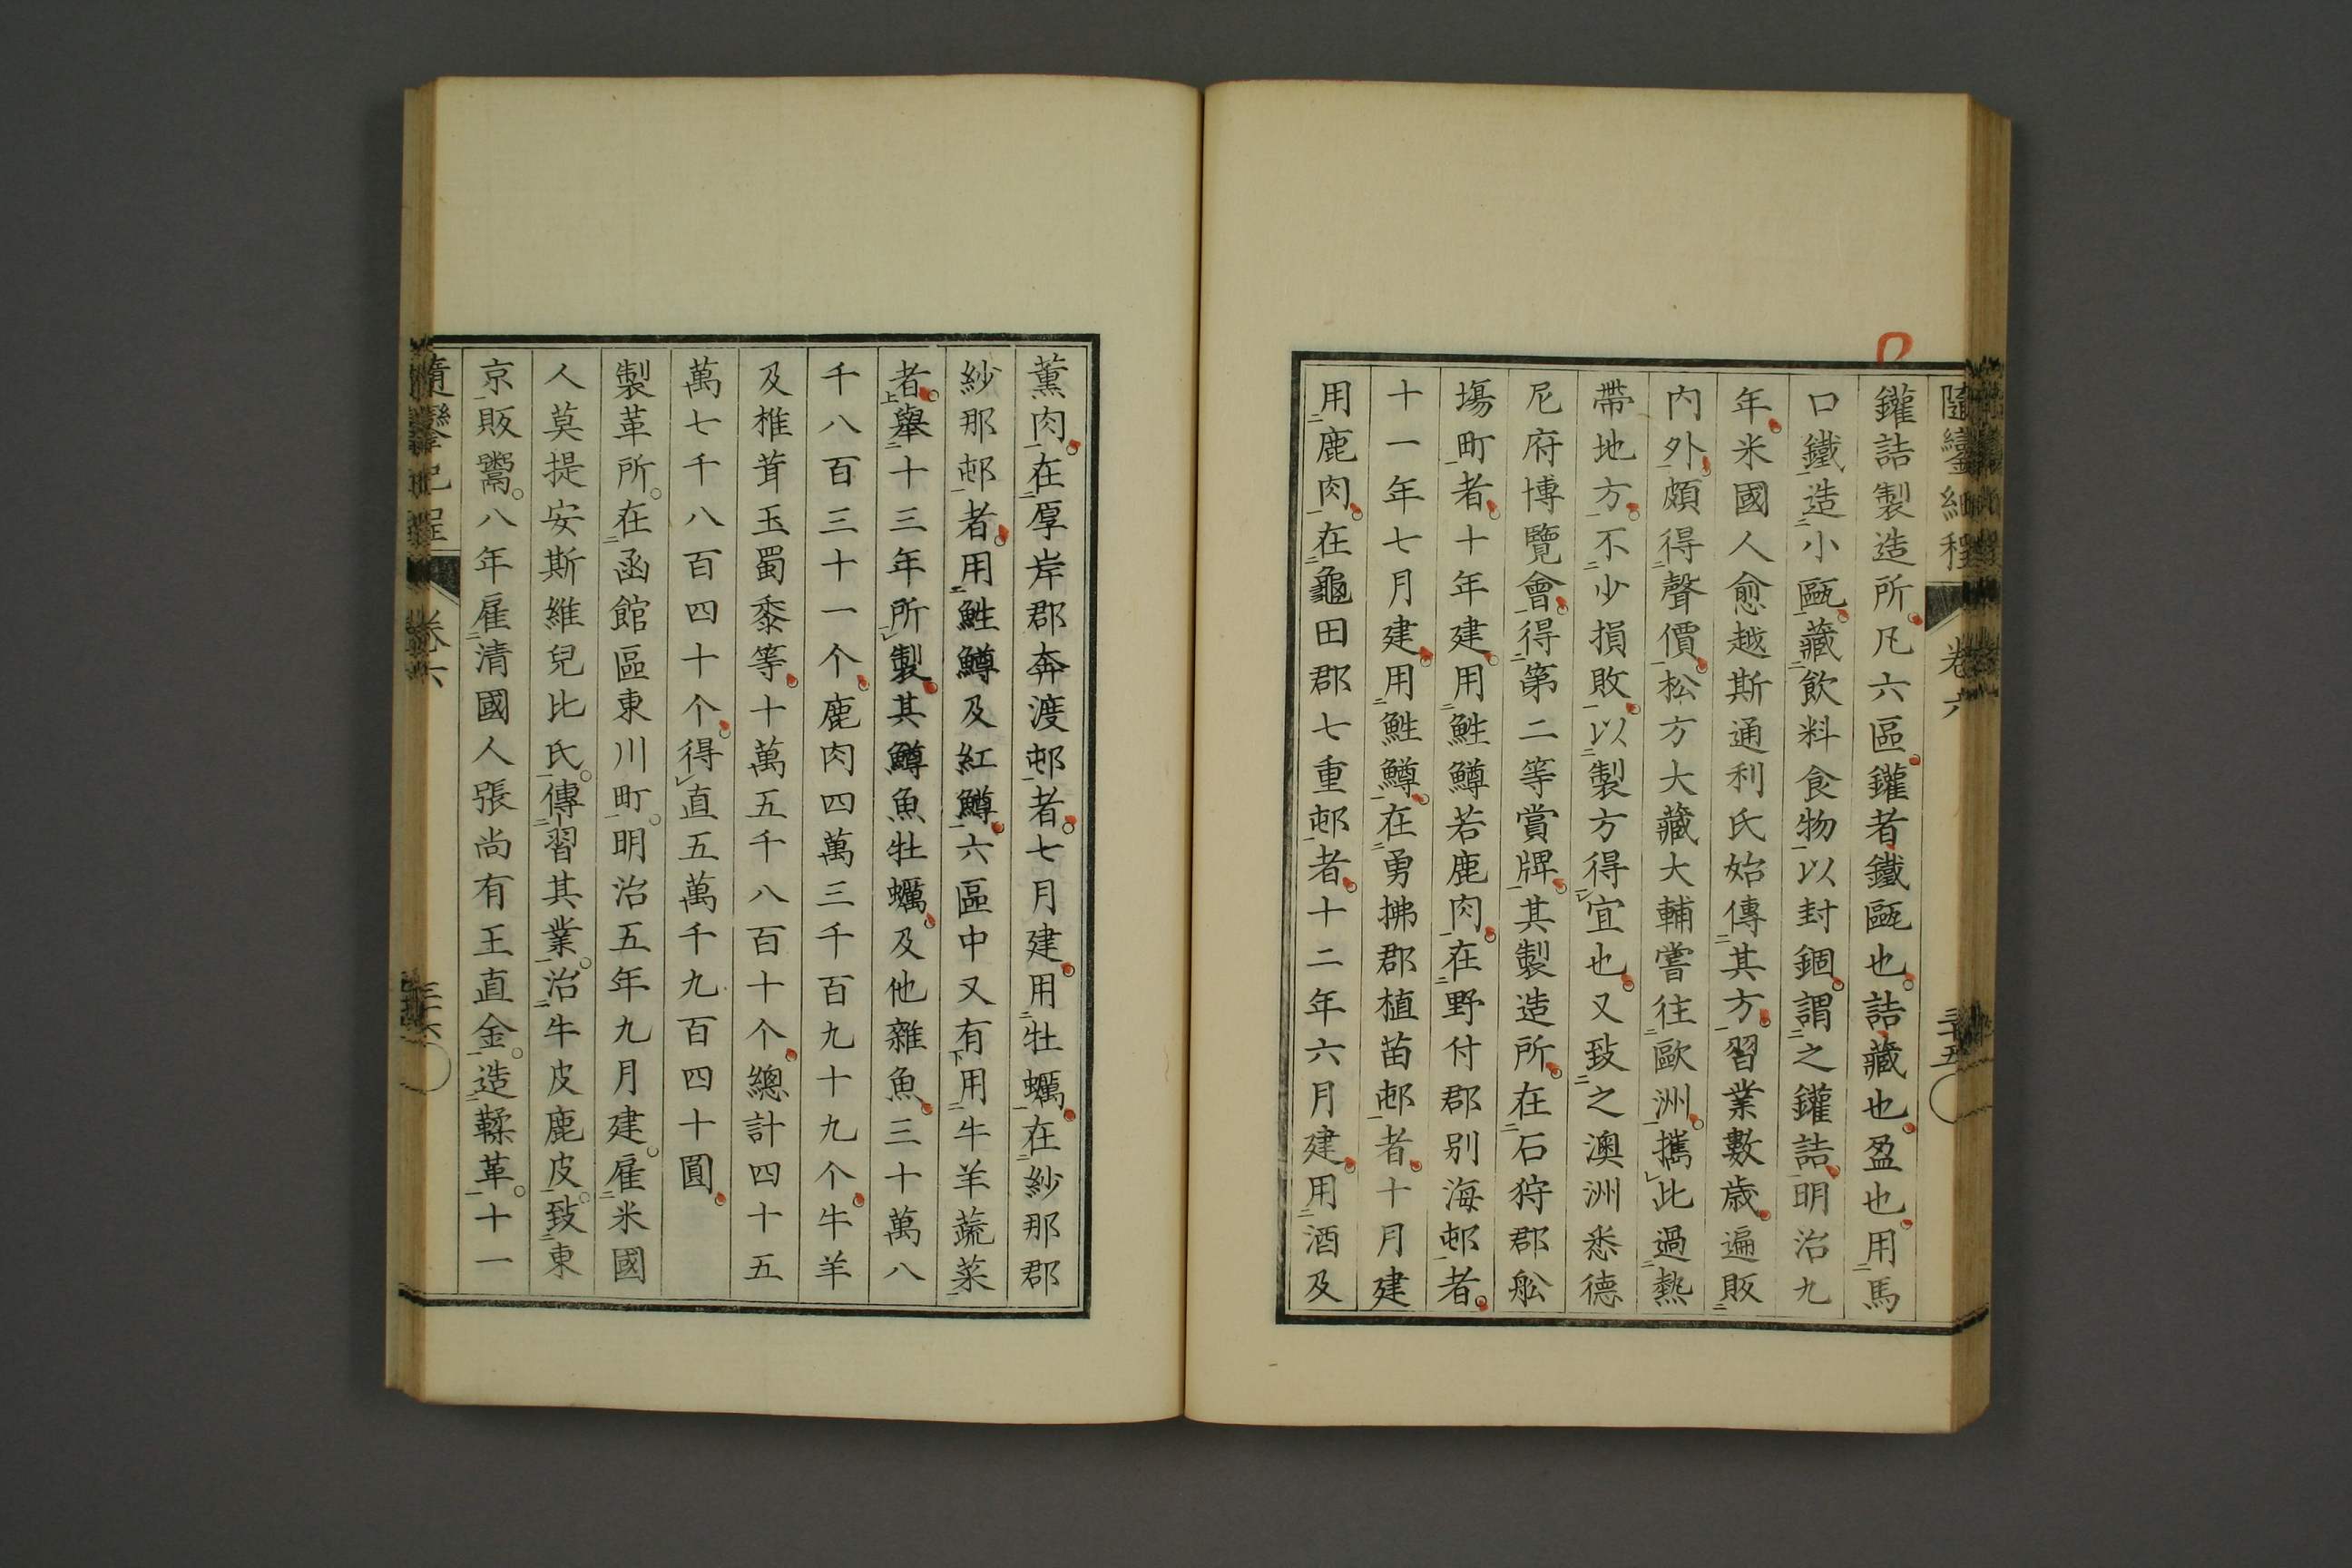 隨鑾紀程 卷六 三十五
鑵詰製造所。凡六區。鑵者鐵匭也。詰藏也。盈也。用馬
口鐵造小匭。藏飲料食物以封錮。謂之鑵詰。明治九
年。米國人愈越斯通利氏始傳其方。習業數歲。遍販
內外。頗得聲價。松方大藏大輔嘗往歐洲。攜此過熱
帶地方。不少損敗。以製方得宜也。又致之澳洲悉德
尼府博覽會。得第二等賞牌。其製造所。在石狩郡舩
塲町者。十年建。用鮏鱒若鹿肉。在野付郡別海邨者。
十一年七月建。用鮏鱒。在勇拂郡植苗邨者。十月建
用鹿肉。在龜田郡七重邨者。十二年六月建。用酒及
薰肉。在厚岸郡奔渡邨者。七月建。用牡蠣。在紗那郡
紗那邨者。用鮏鱒及紅鱒。六區中又有用牛羊蔬菜
者。舉十三年所製。其鱒魚牡蠣。及他雜魚。三十萬八
千八百三十一个。鹿肉四萬三千百九十九个。牛羊
及椎茸玉蜀黍等。十萬五千八百十个。總計四十五
萬七千八百四十个。得直五萬千九百四十圓。
製革所。在函館區東川町。明治五年九月建。雇米國
人莫提安斯維兒比氏。傳習其業。治牛皮鹿皮。致東
京販鬻。八年雇清國人張尚有王直金。造鞣革。十一
隨鑾紀程 卷六 三十六